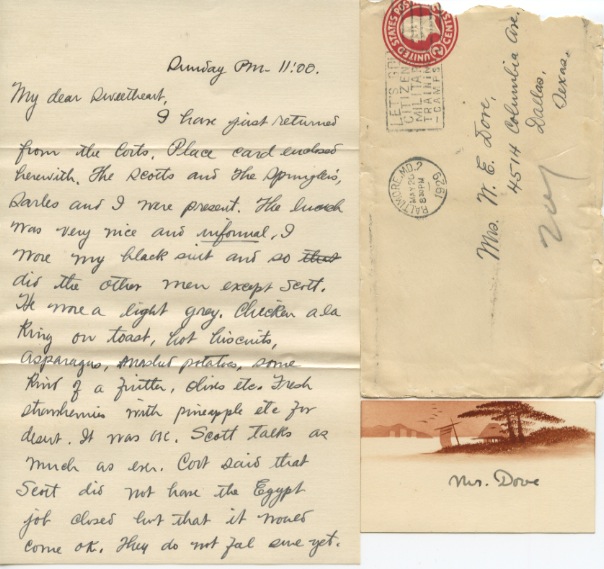 Sunday PM 11:00.
My dear Sweetheart,
I have just returned
from the Corts. Place card enclosed
herewith. The Scotts and the Springles,
Sarles and I were present. The lunch
was very nice and informal, I
wore my black suit and so that
did the other men except Scott.
He wore a light grey. Chicken a la
King on toast, hot biscuits,
asparagus, mashed potatoes, some
kind of a fritter, olives etc. Fresh
strawberries with pineapple etc for
desert. It was OK. Scott talks as
much as ever. Cort said that
Scott did not have the Egypt
job closed but that it would
come OK. They do not feel sure yet.
UNITED STATES POSTAGE
2 CENTS
LET'S GO!
CITIZENS
MILITARY
TRAINING
CAMPS
BALTIMORE, MD. 2
MAY 20
8 PM
1929
Mrs. W. E. Dove,
4514 Columbia Ave.
Dallas,
Texas.
Mr. Dove